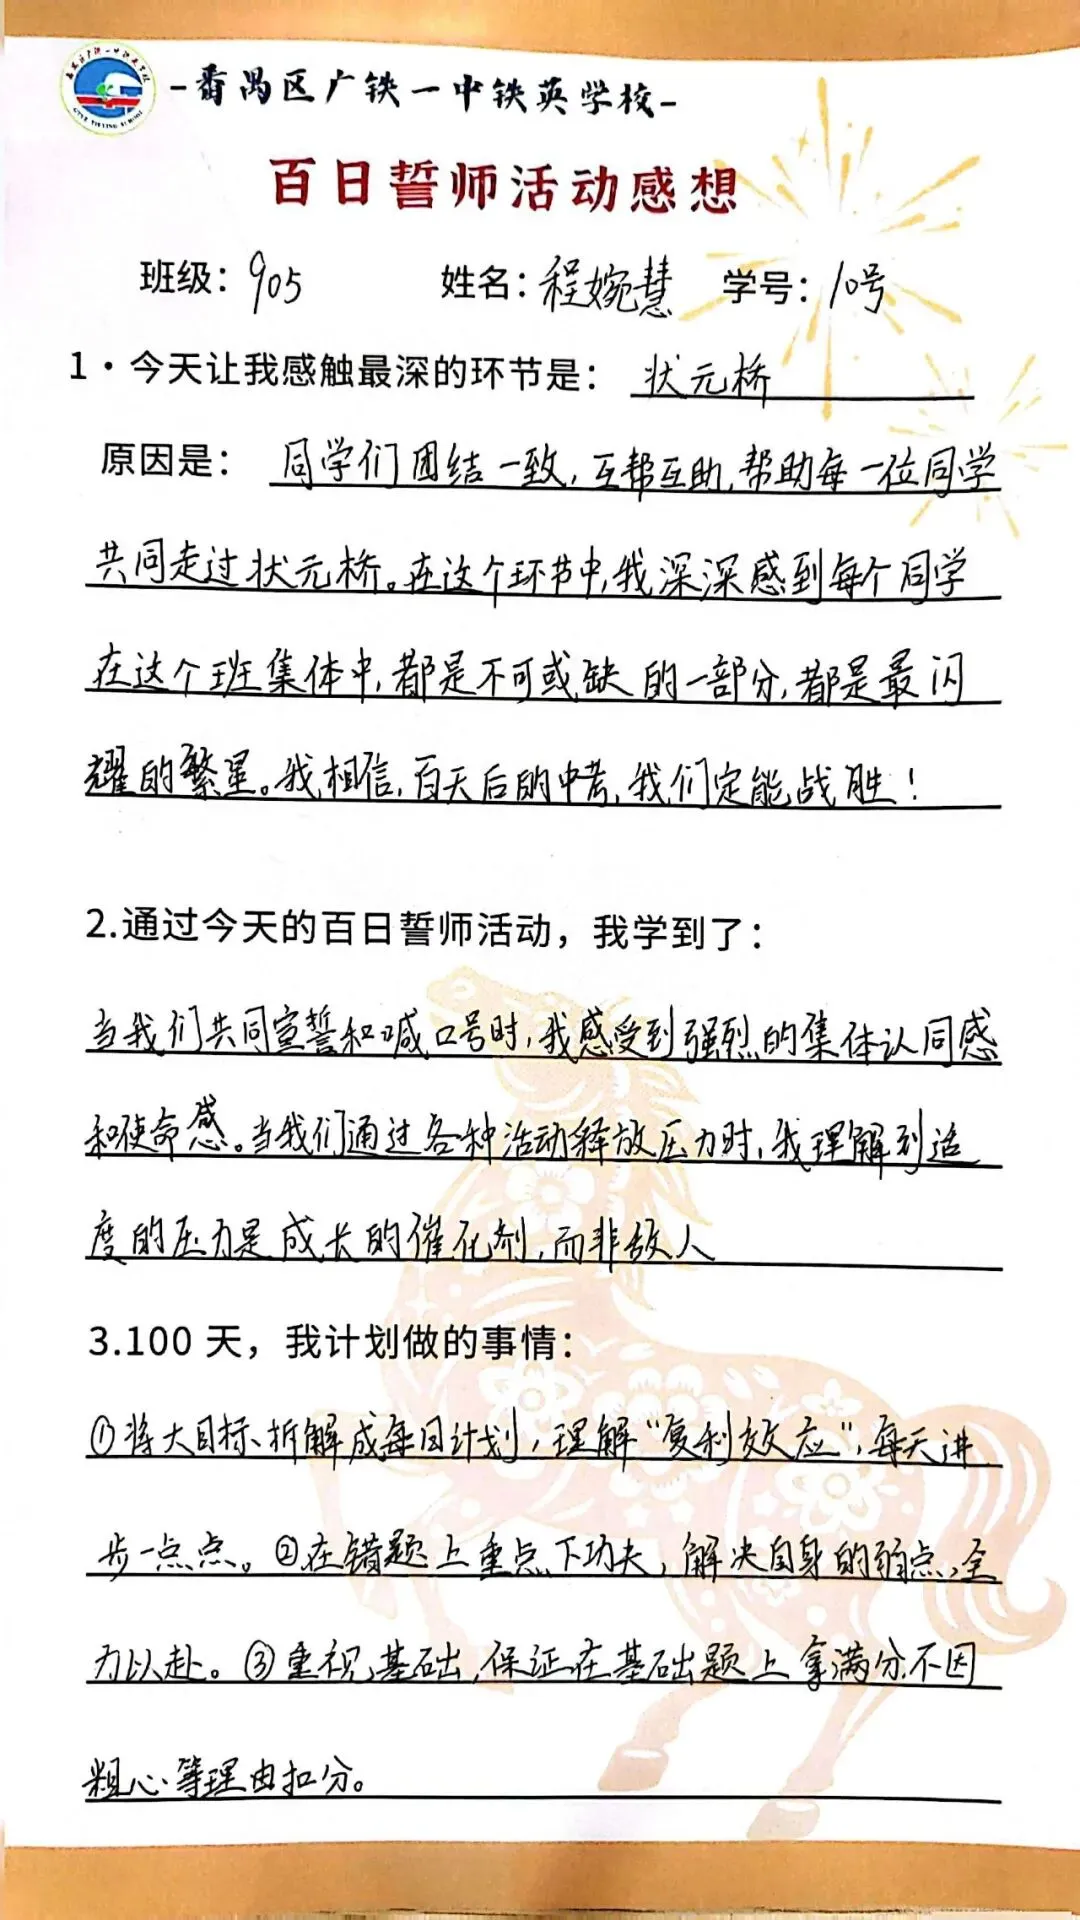 -番禺区广铁一中铁英学校-
百日誓师活动感想
班级：905 姓名：程婉慧 学号：10号
1·今天让我感触最深的环节是：状元桥
原因是：同学们团结一致，互帮互助，帮助每一位同学
共同走过状元桥。在这个环节中，我深深感到每个同学
在这个班集体中，都是不可或缺的一部分，都是最闪
耀的繁星。我相信，百天后的中考，我们定能战胜！
2.通过今天的百日誓师活动，我学到了：
当我们共同宣誓和喊口号时，我感受到强烈的集体认同感
和使命感。当我们通过各种活动释放压力时，我理解到适
度的压力是成长的催化剂，而非敌人
3.100 天，我计划做的事情：
①将大目标、拆解成每日计划，理解“复利效应”，每天进
步一点点。②在错题上重点下功夫，解决自身的弱点，全
力以赴。③重视基础，保证在基础题上拿满分不因
粗心等理由扣分。